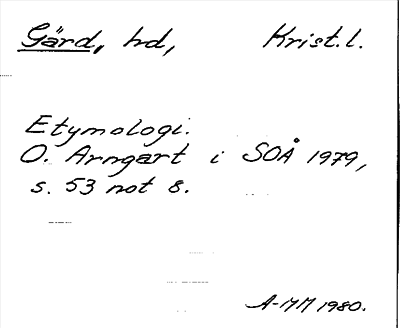 Gärd, hd, Krist.l.
Etymologi.
O. Arngart i SOÅ 1979,
s. 53 not 8.
A-MM 1980.